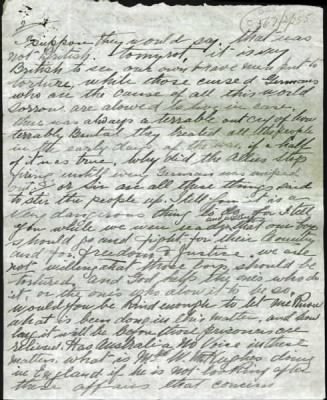 I suppose they would say that was
not British. to my mind it is very
British to see our own brave men put to
torture, while those cursed Germans
who are the cause of all this world
sorrow are alowed to live in ease.
there was always a terrable out cry of how
terrably Brutal they treated all the people
in the early days of the war if a half
of it was true, why did the Allies stop
firing until every German was wiped
out? or are all these things said
to stir the people up. I tell you it is a
very dangerous thing to do for I tell
you while we were ready that our boys
should go and fight for their Country
and for freedom & Justice. we are
not willing that those boys should be
tortured, and God help the ones who do
it, or the ones who allow it to be so.
would you be kind enough to let me know
what is being done in this matter and how
long it will be before those prisoners are
relieved. Has Australia no voice in these
matters, what is Mr W M Hughes doing
in England if he is not looking after
these affairs that concern